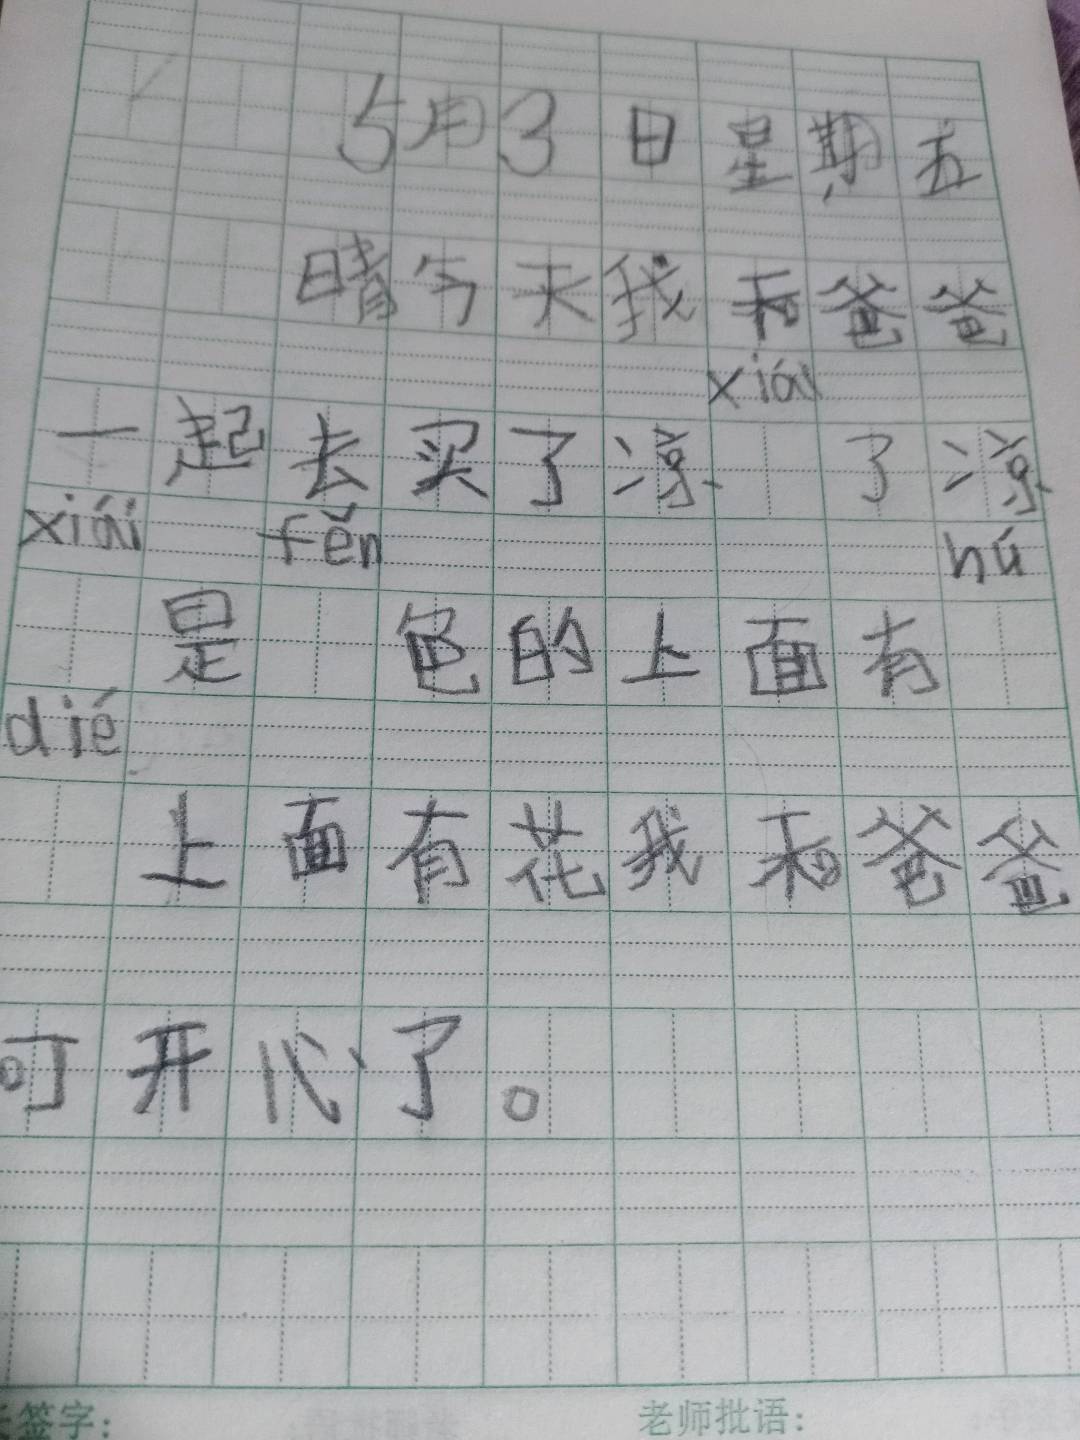 5月3日星期五
晴今天我和爸爸
xiái
一起去买了凉 了凉
xiái fěn hú
是 色的上面有
dié
上面有花我和爸爸
可开心了。
签字: 老师批语: